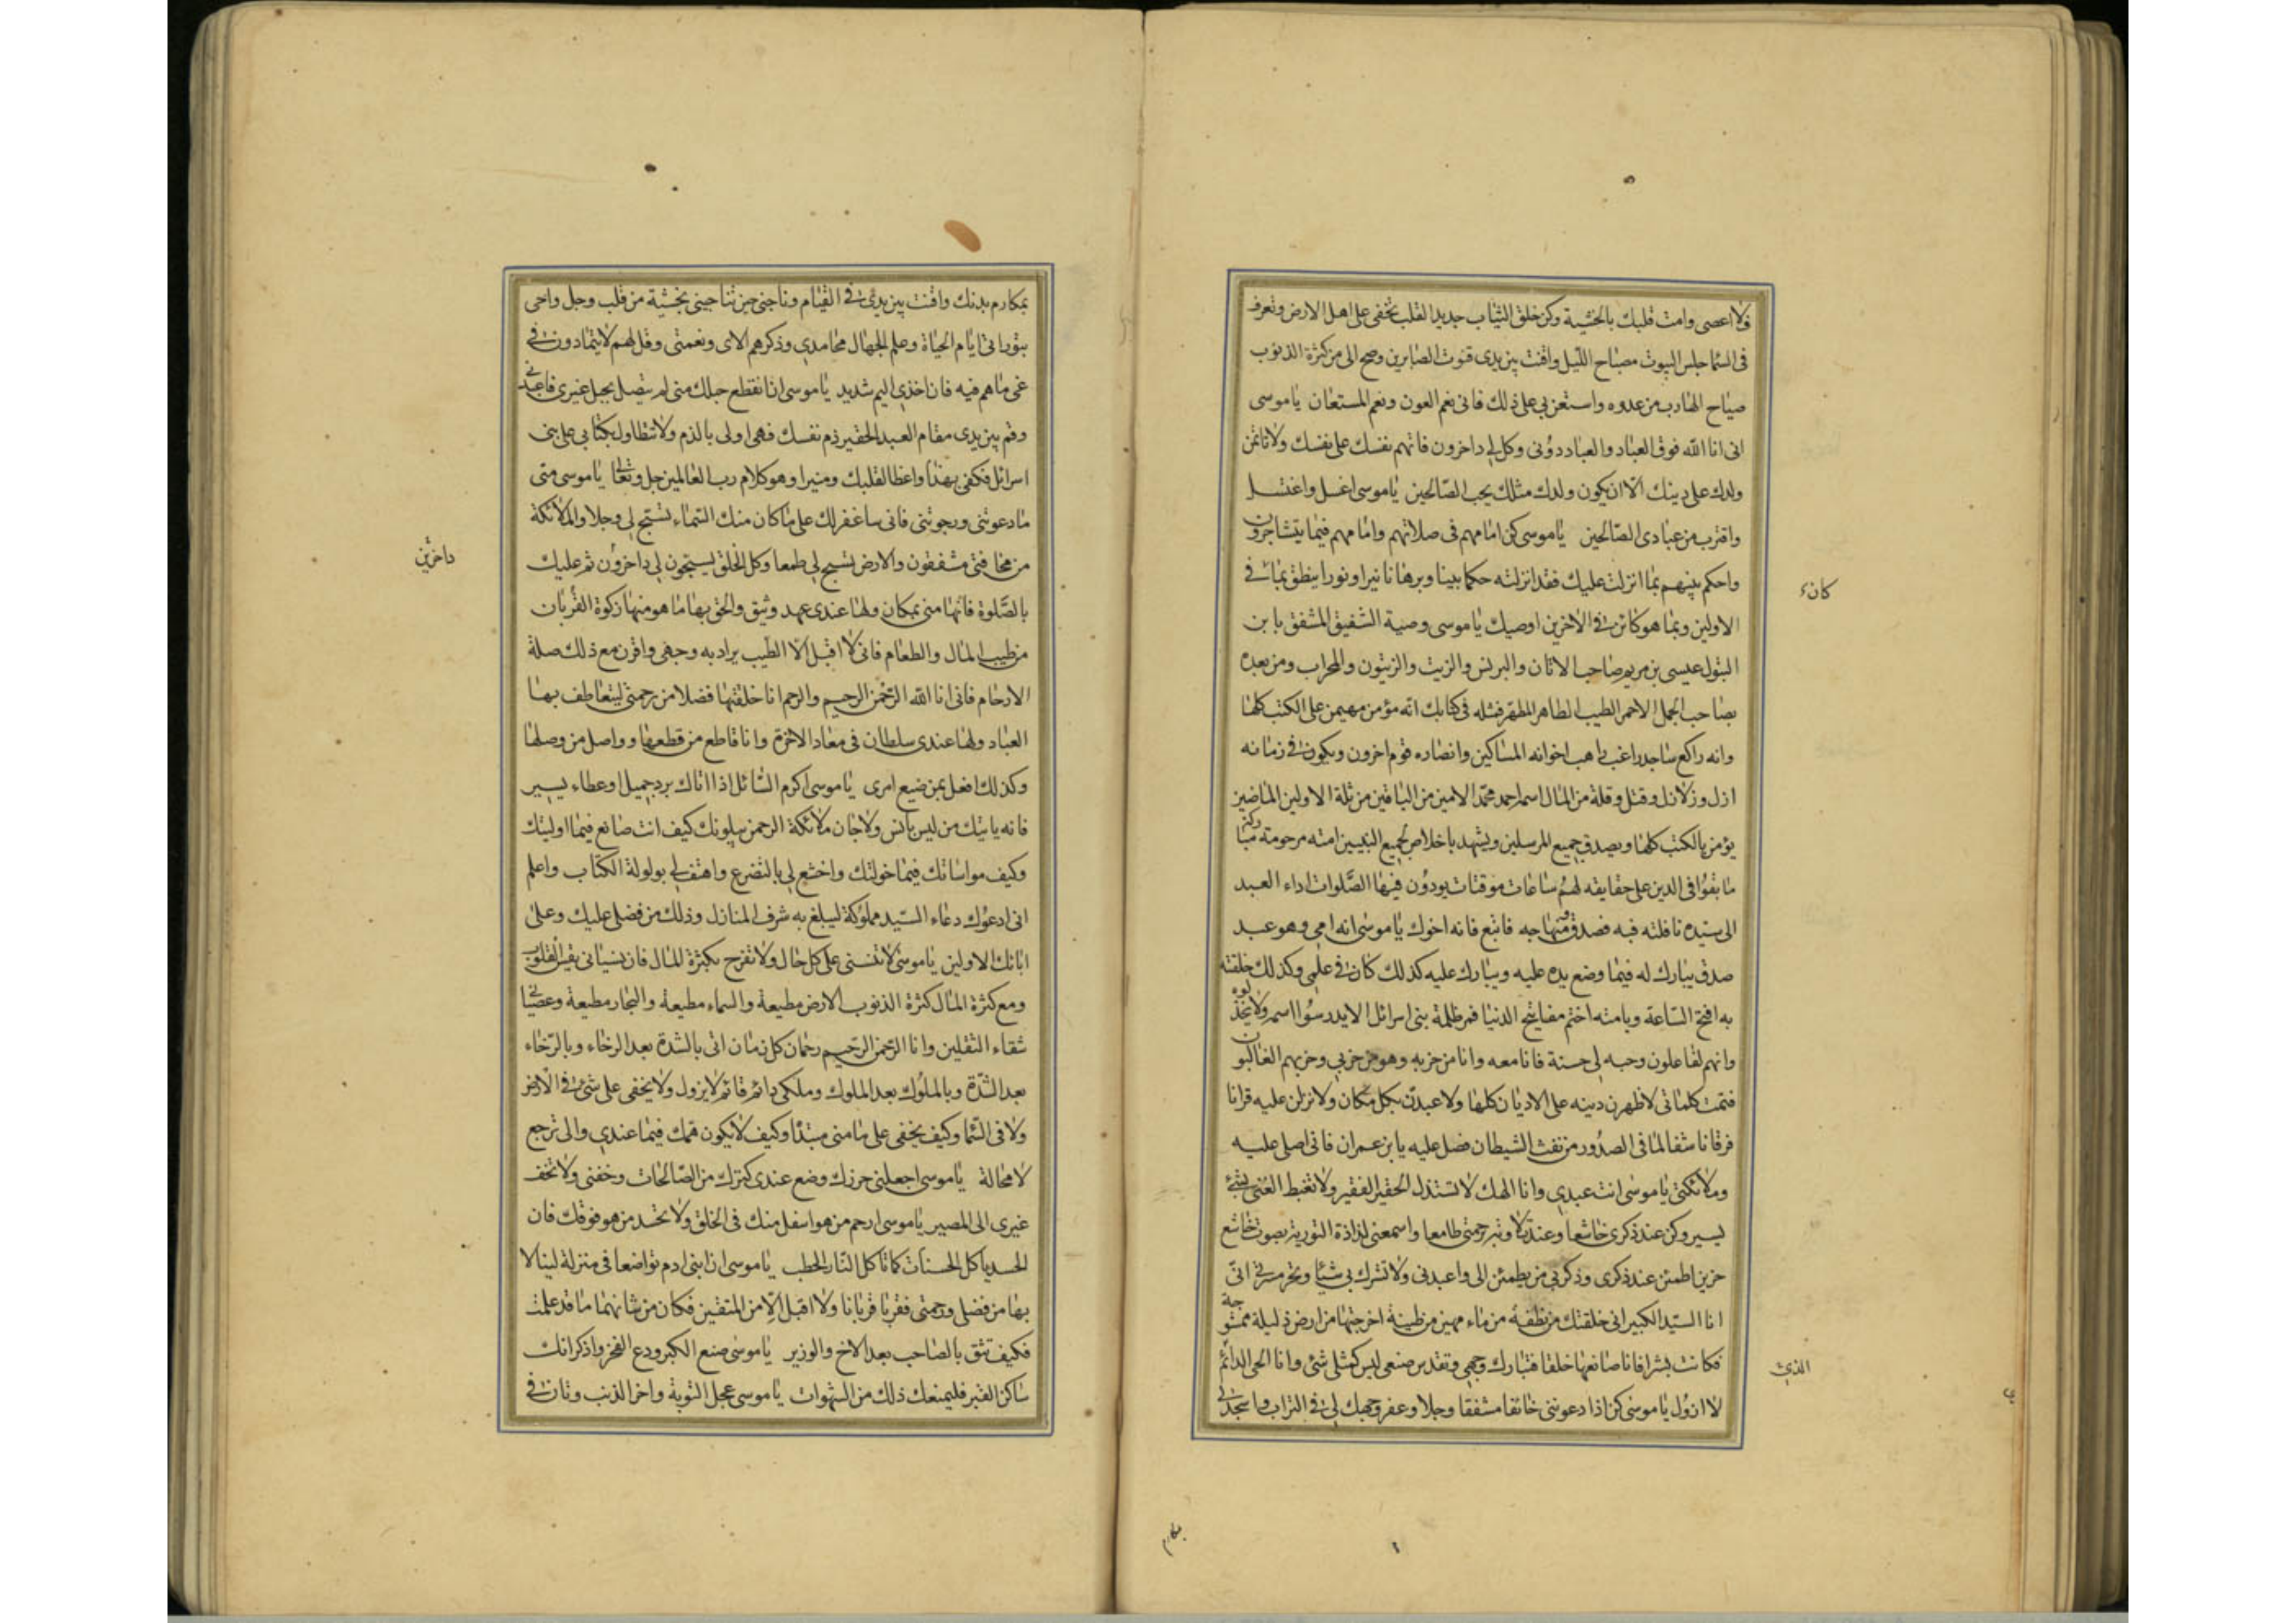 ولا اعصى وامت قلبك بالخشية وكن خلق الثياب جديد القلب تخفى على اهل الارض وتعرف
فى السما جلس البيوت مصباح الليل واقنت بين يدى قنوت الصابرين وصح الى من كثرة الذنوب
صياح الهارب من عدوه واستعن بى على ذلك فانى نعم العون ونعم المستعان ياموسى
انى انا الله فوق العباد والعباد دونى وكل لى داخرون فاتهم نفسك على نفسك ولا تاتمن
ولدك على دينك الا ان يكون ولدك مثلك يحب الصالحين ياموسى اغسل واغتسل
واقترب من عبادى الصالحين ياموسى كن امامهم فى صلاتهم وامامهم فيما يتشاجرون
واحكم بينهم بما انزلت عليك فقد انزلته حكما بينا وبرهانا نيرا ونورا ينطق بما فى
الاولين وبما هو كائن فى الاخرين اوصيك ياموسى وصية الشفيق المشفق بابن
البتول عيسى بن مريم صاحب الاتان والبرنس والزيت والزيتون والمحراب ومن بعده
بصاحب الجمل الاحمر الطيب الطاهر المطهر فمثله فى كتابك انه مؤمن مهيمن على الكتب كلها
وانه راكع ساجد راغب راهب اخوانه المساكين وانصاره قوم اخرون ويكون فى زمانه
ازل وزلازل وقتل وقلة من المال اسمه احمد محمد الامين من الباقين من ثلة الاولين الماضين
يؤمن بالكتب كلها ويصدق جميع المرسلين ويشهد باخلاص لجميع النبيين امته مرحومة مباركة
ما بقوا فى الدين على حقايقه لهم ساعات موقتات يودون فيها الصلوات اداء العبد
الى سيده نافلته فبه فصدق ومنهاجه فاتبع فانه اخوك ياموسى انه امى وهو عبد
صدق يبارك له فيما وضع يده عليه ويبارك عليه كذلك كان فى علمى وكذلك خلقته
به افتح الساعة وبامته اختم مفاتيح الدنيا فمر ظلمة بنى اسرائل الا يدرسوا اسمه ولا يخذلوه
وانهم لفاعلون وحبه لى حسنة فانا معه وانا من حزبه وهو من حزبى وحزبهم الغالبون
فتمت كلماتى لاظهرن دينه على الاديان كلها ولاعبدن بكل مكان ولانزلن عليه قرانا
فرقانا شفا لما فى الصدور من نفث الشيطان فصل عليه يابن عمران فانى اصلى عليه
وملائكتى ياموسى انت عبدى وانا الهك لا تستذل الحقير الفقير ولا تغبط الغنى بشئ
يسير وكن عند ذكرى خاشعا وعند تلاوته برحمتى طامعا واسمعنى لذاذة التورية بصوت خاشع
حزين اطمئن عند ذكرى وذكر بى من يطمئن الى واعبدنى ولا تشرك بى شيئا وتحر مسرتى انى
انا السيد الكبير انى خلقتك من نطفة من ماء مهين من طينة اخرجتها من ارض ذليلة ممشوجة
فكانت بشرا فانا صانعها خلقا فتبارك وجهى وتقدس صنعى ليس كمثلى شئ وانا الحى الدائم
لا ازول ياموسى كن اذا دعوتنى خائفا مشفقا وجلا وعفر وجهك لى فى التراب واسجد لى
كان
الذى
بمكارم
بمكارم بدنك واقنت بين يدى فى القيام وناجنى حين تناجينى بخشية من قلب وجل واحى
بتوراتى ايام الحياة وعلم الجهال محامدى وذكرهم الاى ونعمتى وقل لهم لا يتمادون فى
غى ماهم فيه فان اخذى اليم شديد ياموسى ان انقطع حبلك منى لم يتصل بحبل غيرى فاعبدنى
وقم بين يدى مقام العبد الحقير ذم نفسك فهى اولى بالذم ولا تتطاول بكتابى على بنى
اسرائل فكفى بهذا واعظا لقلبك ومنيرا وهو كلام رب العالمين جل وتعالى ياموسى متى
ما دعوتنى ورجوتنى فانى ساغفر لك على ما كان منك السماء تسبح لى وجلا والملائكة
من مخافتى مشفقون والارض تسبح لى طمعا وكل الخلق يسبحون لى داخرون ثم عليك
بالصلوة فانها منى بمكان ولها عندى عهد وثيق والحق بها ما هو منها زكوة القربان
من طيب المال والطعام فانى لا اقبل الا الطيب يراد به وجهى واقرن مع ذلك صلة
الارحام فانى انا الله الرحمن الرحيم والرحم انا خلقتها فضلا من رحمتى ليتعاطف بها
العباد ولها عندى سلطان فى معاد الاخرة وانا قاطع من قطعها وواصل من وصلها
وكذلك افعل بمن ضيع امرى ياموسى اكرم السائل اذا اتاك برد جميل او عطاء يسير
فانه ياتيك من ليس بانس ولا جان ملائكة الرحمن يبلونك كيف انت صانع فيما اوليتك
وكيف مواساتك فيما خولتك واخشع لى بالتضرع واهتف لى بولولة الكتاب واعلم
انى ادعوك دعاء السيد مملوكه ليبلغ به شرف المنازل وذلك من فضلى عليك وعلى
ابائك الاولين ياموسى لا تنسنى على كل حال ولا تفرح بكثرة المال فان نسيانى يقسى القلوب
ومع كثرة المال كثرة الذنوب الارض مطيعة والسماء مطيعة والبحار مطيعة وعصيانى
شقاء الثقلين وانا الرحمن الرحيم رحمان كل زمان اتى بالشدة بعد الرخاء وبالرخاء
بعد الشدة وبالملوك بعد الملوك وملكى دائم قائم لا يزول ولا يخفى على شئ فى الارض
ولا فى السما وكيف يخفى على ما منى مبتدا وكيف لا يكون همك فيما عندى والى ترجع
لا محالة ياموسى اجعلنى حرزك وضع عندى كنزك من الصالحات وخفنى ولا تخف
غيرى الى المصير ياموسى ارحم من هو اسفل منك فى الخلق ولا تحسد من هو فوقك فان
الحسد ياكل الحسنات كما تاكل النار الحطب ياموسى ان ابنى ادم تواضعا فى منزلة لينالا
بها من فضلى ورحمتى فقربا قربانا ولا اقبل الا من المتقين فكان من شانهما ما قد علمت
فكيف تثق بالصاحب بعد الاخ والوزير ياموسى ضع الكبر ودع الفخر واذكر انك
ساكن القبر فليمنعك ذلك من الشهوات ياموسى عجل التوبة واخر الذنب وتان فى
داخرين